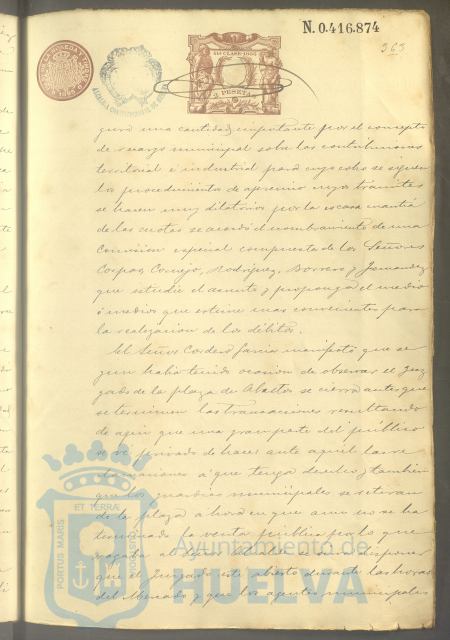 N. 0.416.874
363
11ª CLASE-1903
2 PESETAS
gura una cantidad importante por el concepto
de recargo municipal sobre las contribuciones
territorial é industrial para cuyo cobro se siguen
los procedimientos de apremio cuyos trámites
se hacen muy dilatorios por la escasa cuantía
de las cuotas se acordó el nombramiento de una
Comisión especial compuesta de los Señores
Cospas, Cornejo, Rodriguez, Borrero y Fernandez
que estudie el asunto y proponga el medio
ó medios que estime mas convenientes para
la realización de los débitos.
El Señor Cordero Garcia manifestó que se
gun habia tenido ocasion de observar el Juz
gado de la plaza de Abastos se cierra antes que
se terminen las transaciones resultando
de aqui que una gran parte del público
se vé privado de hacer ante aquel las re
clamaciones á que tenga derecho y tambien
que los guardias municipales se retiran
de la plaza a hora en que aun no se ha
terminado la venta publica por lo que
rogaba al Señor Alcalde disponer
que el Juzgado esté abierto durante las horas
del Mercado y que los agentes municipales
PORTUS MARIS
ET TERRÆ
Ayuntamiento de
HUELVA